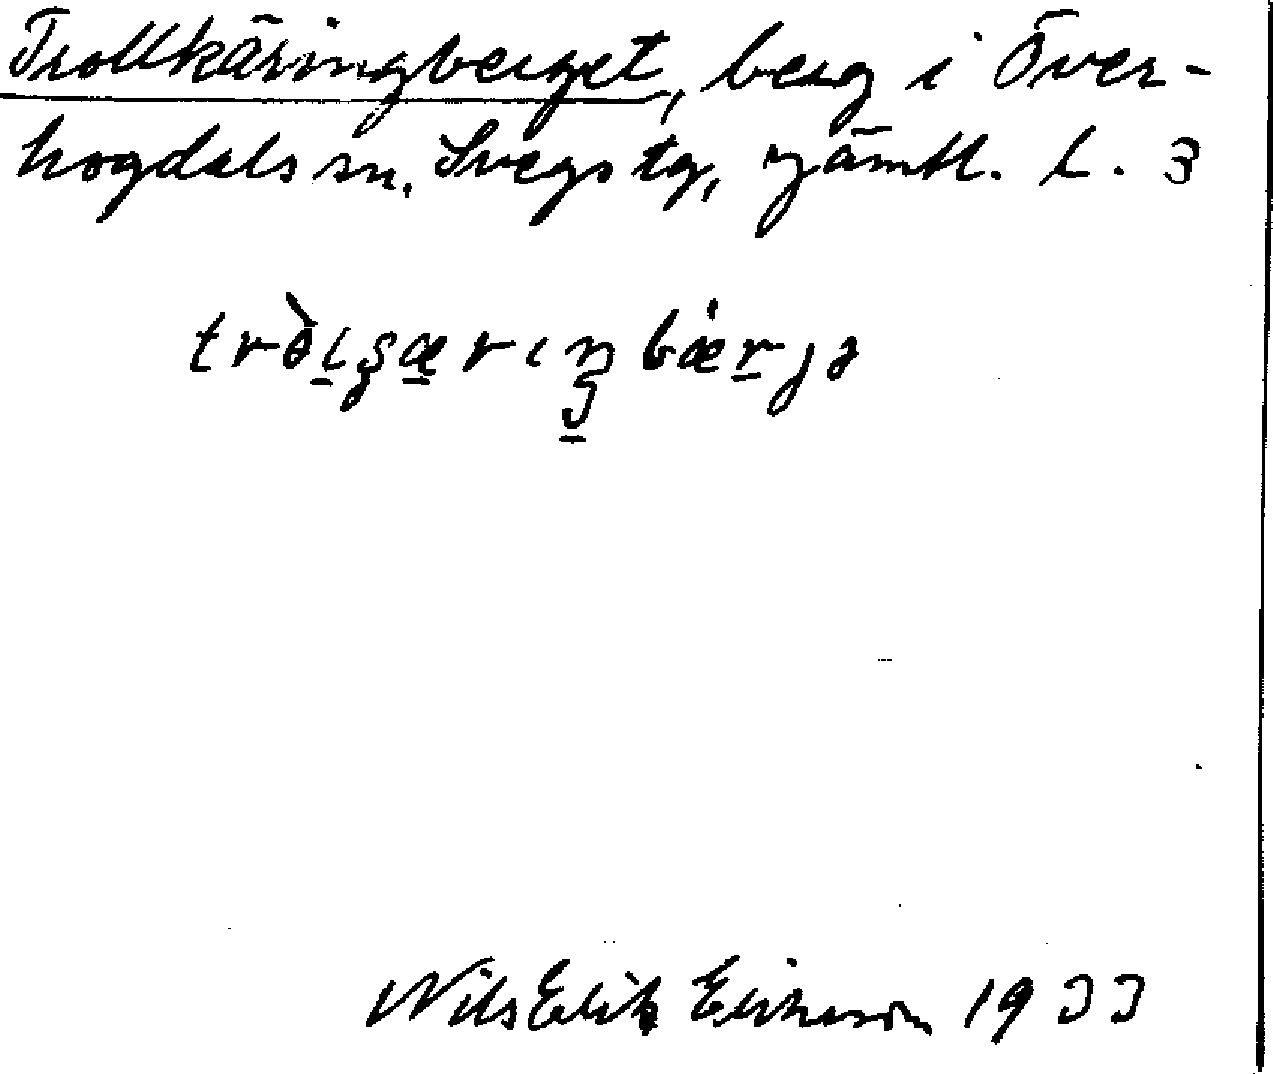 Trollkäringberget, berg i Över-
hogdals sn. Svegs tg, Jämtl. l. 3
Nils Erik Eriksson 1933